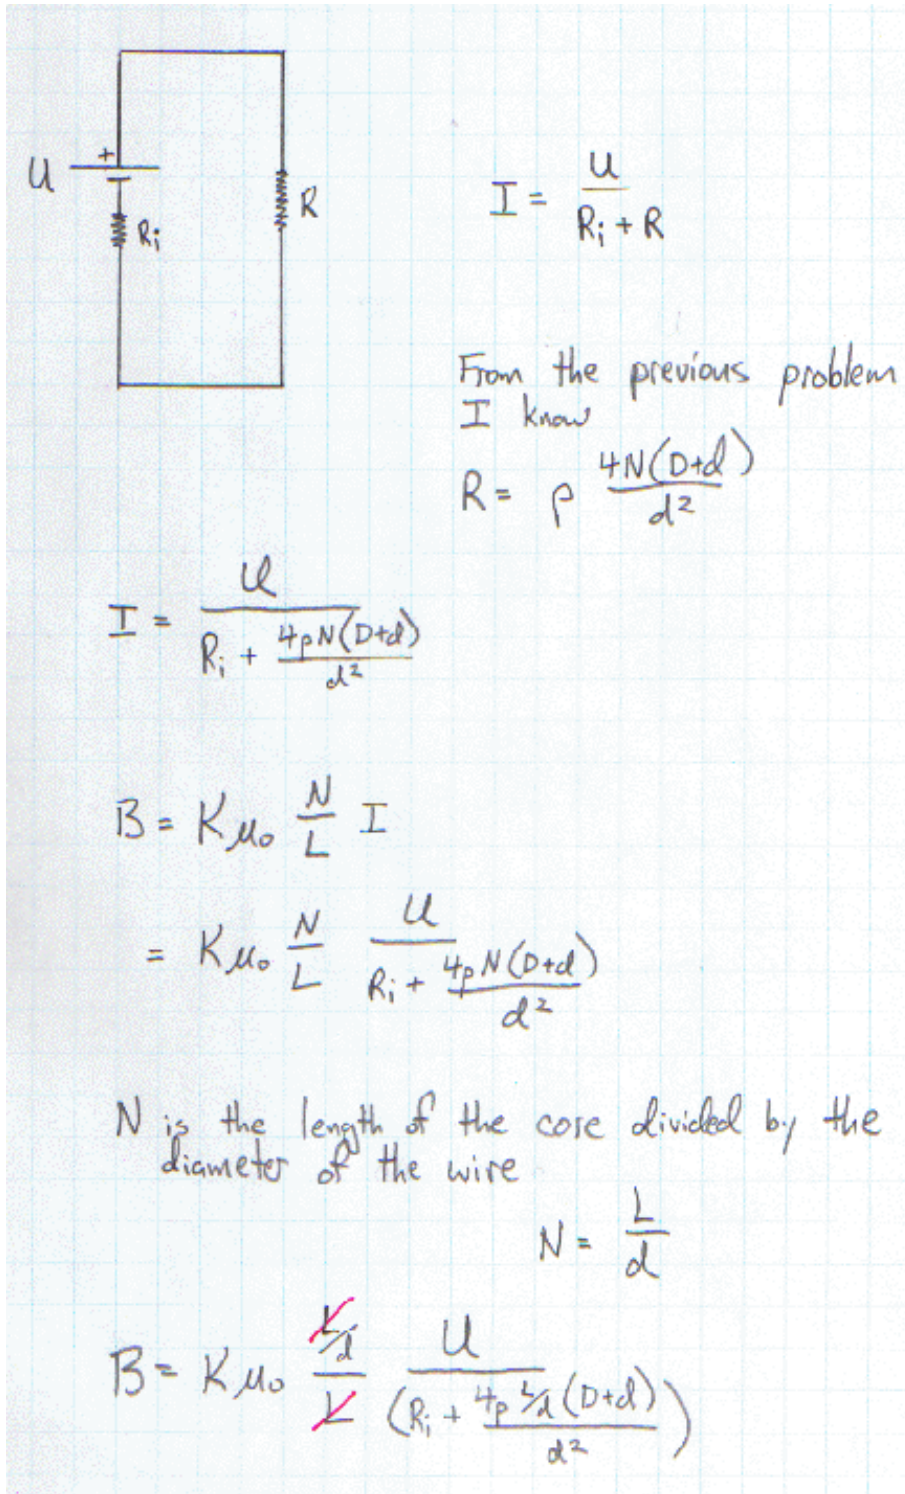 U + Ri R
I = U / (Ri + R)
From the previous problem
I know
R = ρ 4N(D+d) / d²
I = U / (Ri + 4ρN(D+d) / d²)
B = Kμ₀ N/L I
= Kμ₀ N/L U / (Ri + 4ρN(D+d) / d²)
N is the length of the core divided by the
diameter of the wire
N = L/d
B = Kμ₀ (L/d)/L U / (Ri + 4ρ L/d (D+d) / d²)